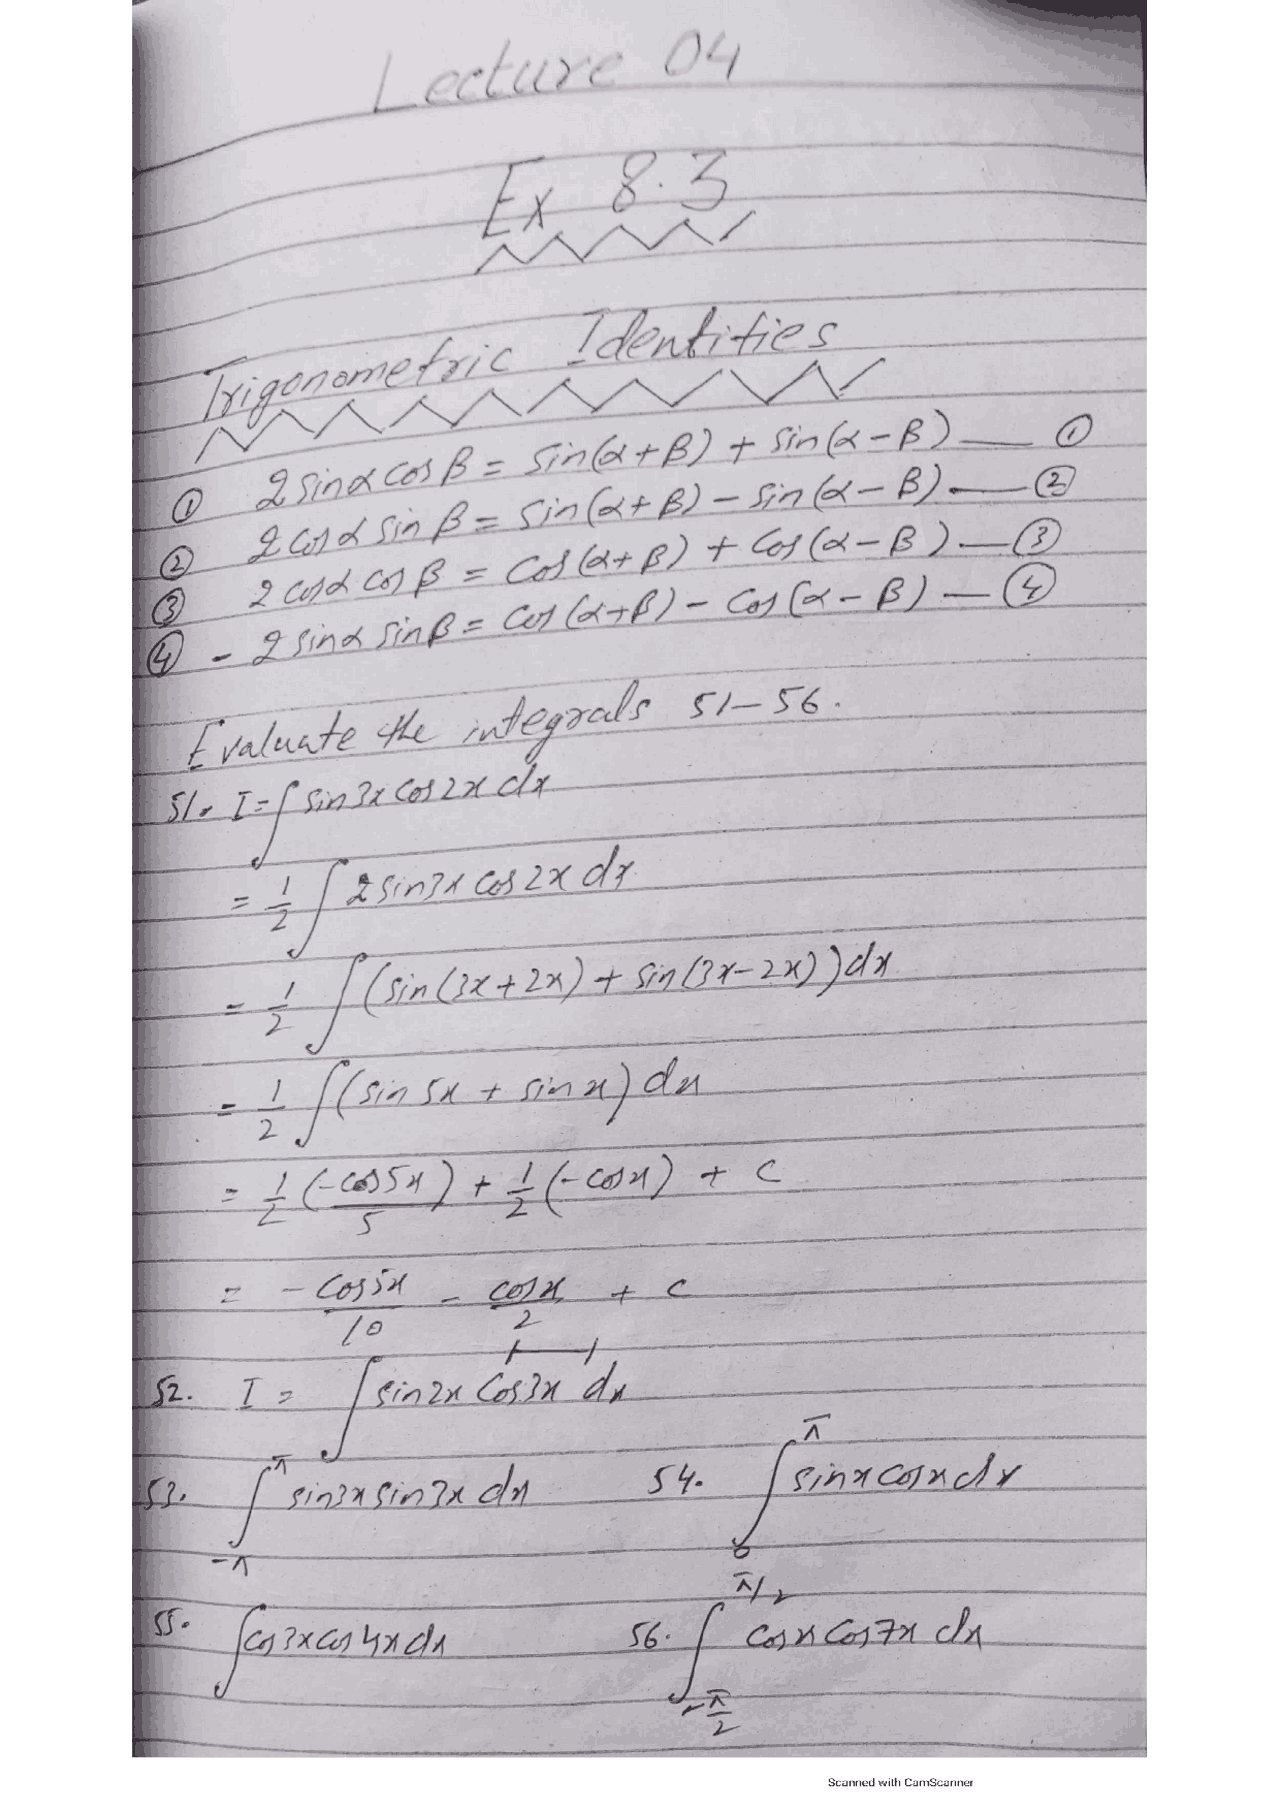 Lecture 04
Ex 8.3
Trigonometric Identities
① 2 sinα cos β = sin(α+β) + sin(α-β) — ①
② 2 cos α sin β = sin(α+β) - sin(α-β) — ②
③ 2 cosα cos β = Cos(α+β) + Cos(α-β) — ③
④ - 2 sinα sin β = Cos(α+β) - Cos(α-β) — ④
Evaluate the integrals 51-56.
51. I = ∫ sin3x Cos2x dx
= 1/2 ∫ 2 sin3x Cos 2x dx
= 1/2 ∫ (sin(3x+2x) + sin(3x-2x)) dx
= 1/2 ∫ (sin 5x + sin x) dx
= 1/2 (-cos5x)/5 + 1/2 (-cosx) + C
= - Cos5x/10 - cosx/2 + C
52. I = ∫ sin2x Cos3x dx
53. ∫_{-π}^{π} sin3x sin3x dx 54. ∫_{0}^{π} sinx cosx dx
55. ∫ cos3x cos4x dx 56. ∫_{-π/2}^{π/2} cosx Cos7x dx
Scanned with CamScanner